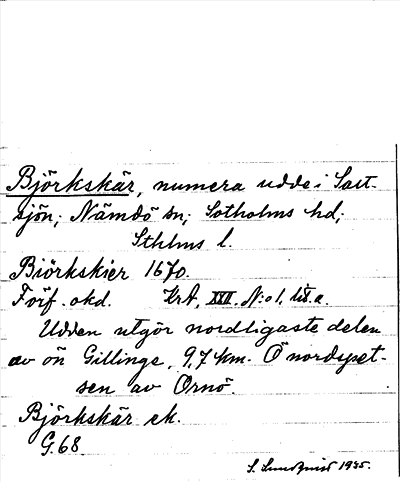 Björkskär, numera udde i Salt-
sjön; Nämdö sn; Sotholms hd;
Sthlms l.
Biörkskier 1670.
Förf. okd. KrA, XXII, N:o 1, lit. a.
Udden utgör nordligaste delen
av ön Gillinge, 9,7 km. Ö nordspet-
sen av Ornö.
Björkskär ek.
G.68
S. Lundqvist 1935.